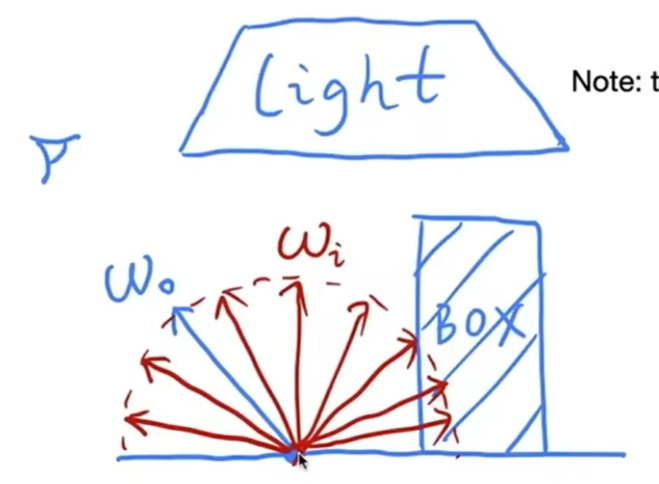 light
Note: t
ωi
ωo
BOX